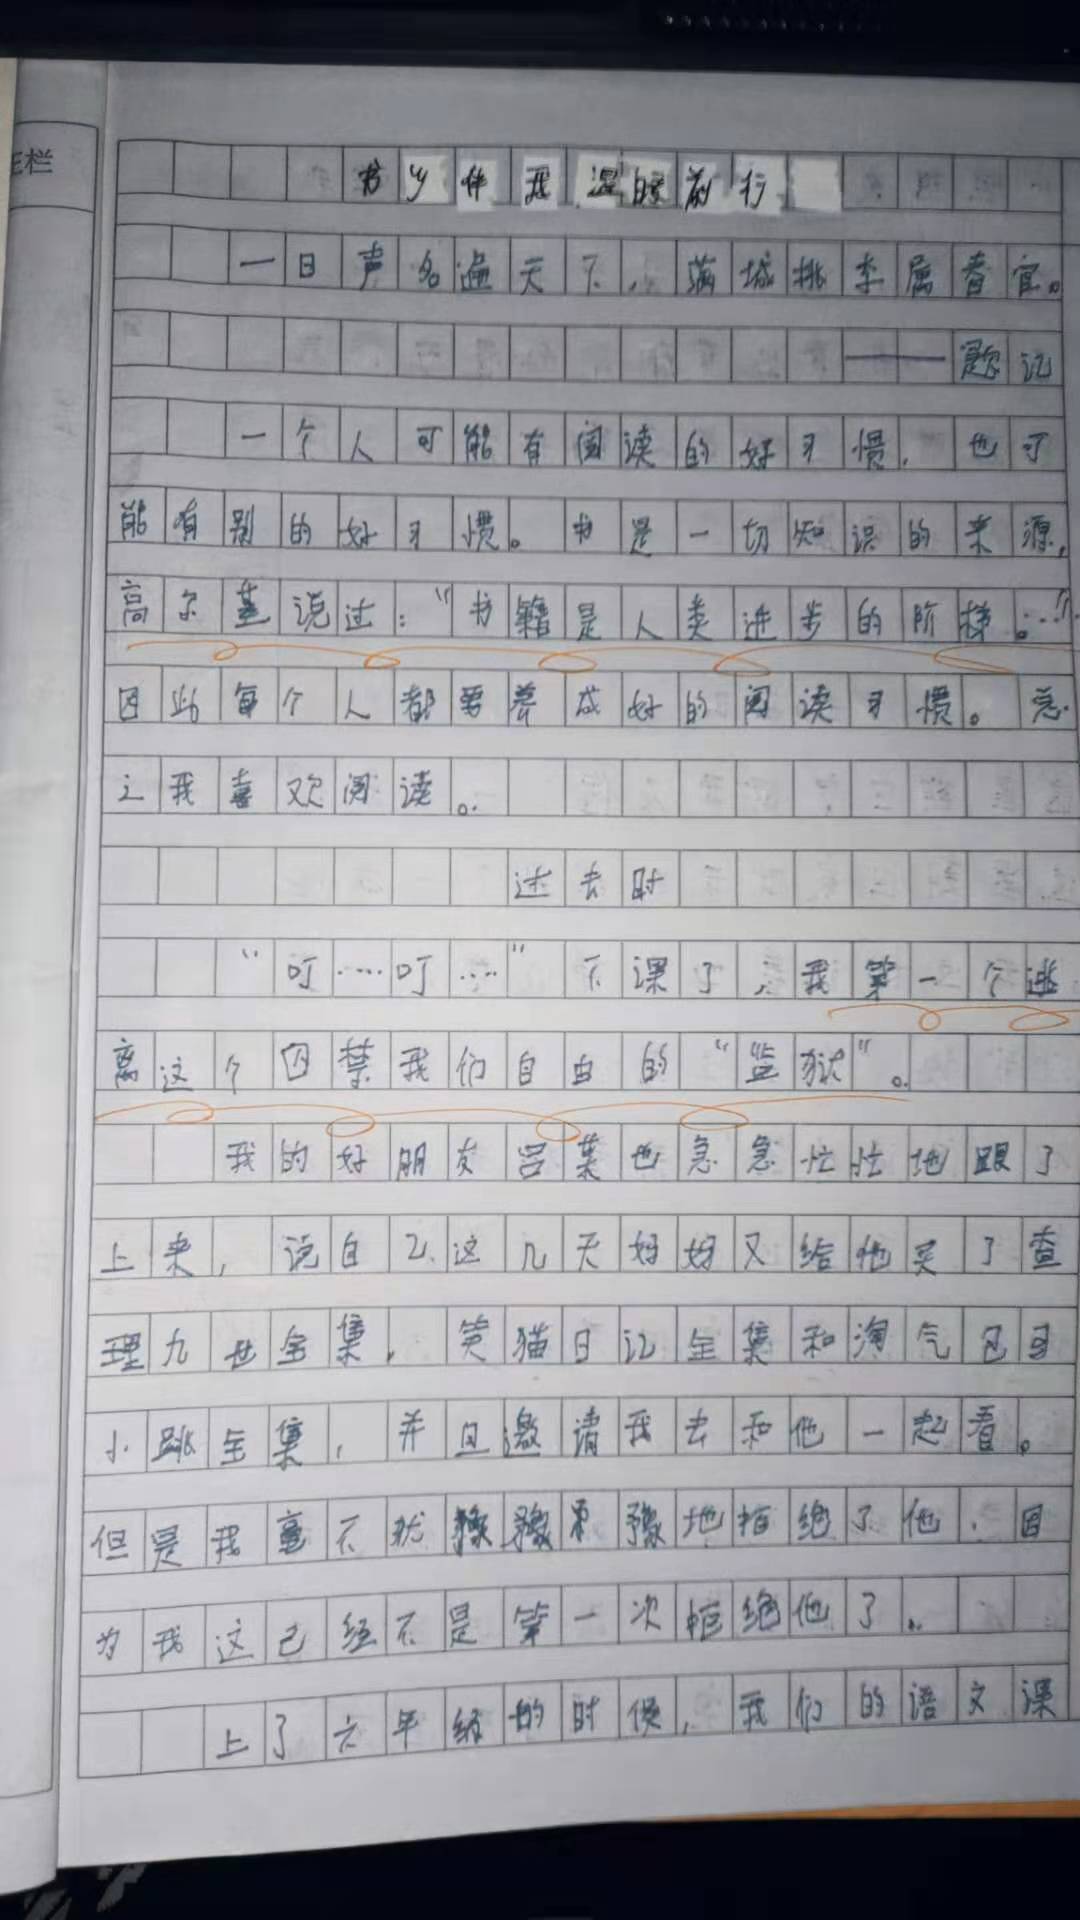 E栏
书 伴我 前行
一日声名遍天下,满城桃李属春官。
——题记
一个人可能有阅读的好习惯,也可
能有别的好习惯。书是一切知识的来源,
高尔基说过:“书籍是人类进步的阶梯。…”
因此每个人都要养成好的阅读习惯。总
之我喜欢阅读。
过去时
“叮……叮……”下课了,我第一个逃
离这个囚禁我们自由的“监狱”。
我的好朋友吕某也急急忙忙地跟了
上来,说自己这几天妈妈又给他买了查
理九世全集,笑猫日记全集和淘气包马
小跳全集,并且邀请我去和他一起看。
但是我毫不犹 豫地拒绝了他,因
为我这已经不是第一次拒绝他了。
上了六年级的时候,我们的语文课